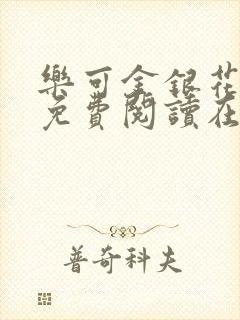 樂可金銀花
免費閱讀在
普奇科夫